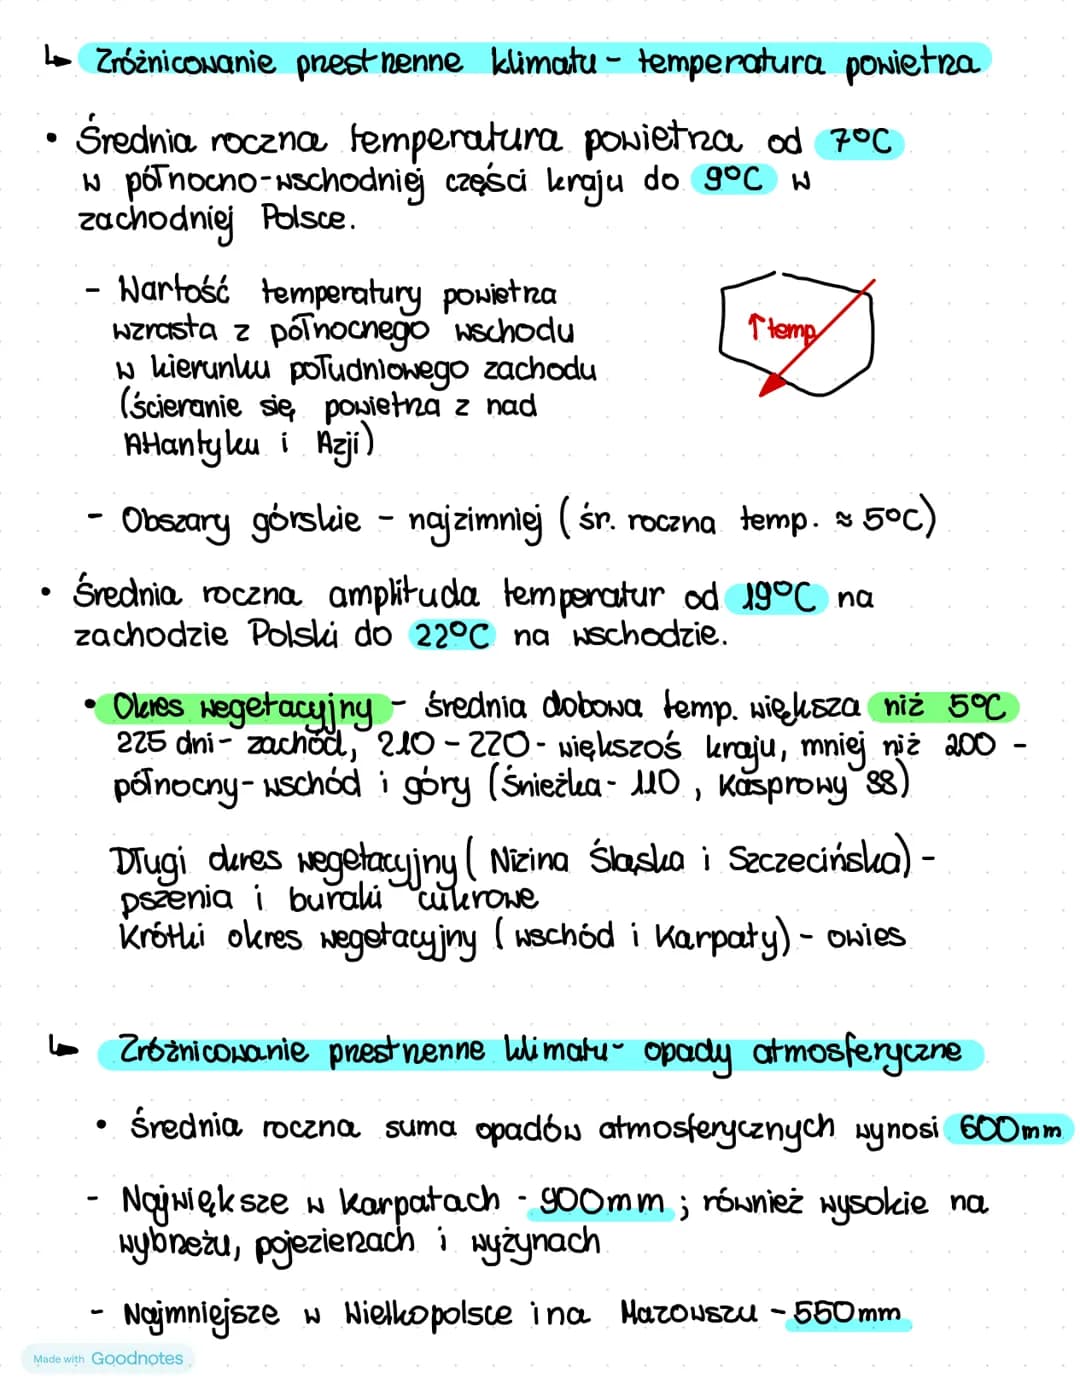 ↳ Zróżnicowanie przestrzenne klimatu - temperatura powietrza
• Średnia roczna temperatura powietrza od 7°C
w północno-wschodniej części kraju do 9°C w
zachodniej Polsce.
- Wartość temperatury powietrza
wzrasta z północnego wschodu
w kierunku południowego zachodu
(ścieranie się powietrza z nad
Atlantyku i Azji)
↑temp.
- Obszary górskie - najzimniej (śr. roczna temp. ≈ 5°C)
• Średnia roczna amplituda temperatur od 19°C na
zachodzie Polski do 22°C na wschodzie.
• Okres wegetacyjny - średnia dobowa temp. większa niż 5°C
225 dni - zachód, 210 - 220 - większoś kraju, mniej niż 200 -
północny - wschód i góry (Śnieżka - 110, Kasprowy 88)
Długi okres wegetacyjny (Nizina Śląska i Szczecińska) -
pszenia i buraki cukrowe
Krótki okres wegetacyjny (wschód i Karpaty) - owies
↳ Zróżnicowanie przestrzenne klimatu - opady atmosferyczne
• Średnia roczna suma opadów atmosferycznych wynosi 600mm
- Największe w Karpatach - 900mm; również wysokie na
wybrzeżu, pojezierzach i wyżynach
- Najmniejsze w Wielkopolsce i na Mazowszu - 550mm
Made with Goodnotes